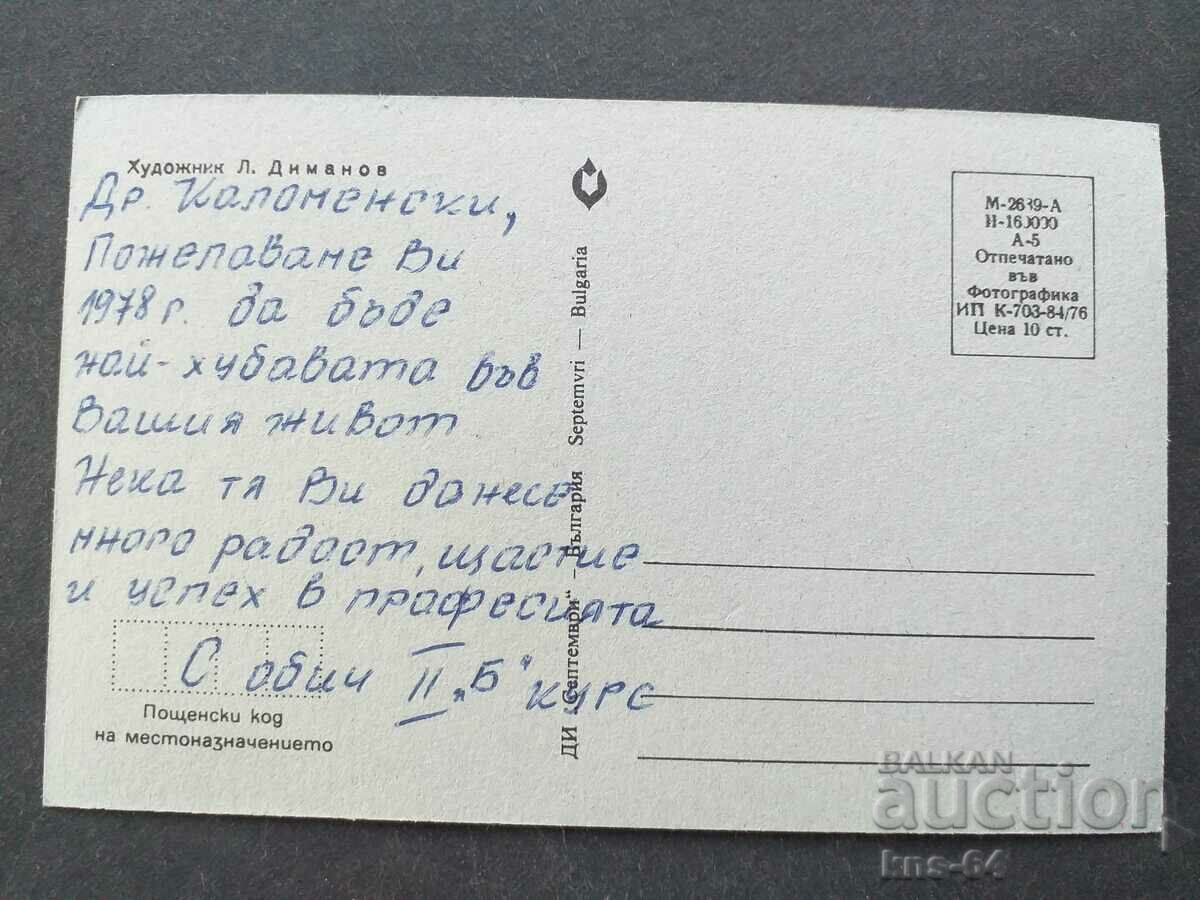 Художник Л. Диманов
Др. Каломенски,
Пожелаваме Ви
1978 г. да бъде
най-хубавата във
Вашия живот
Нека тя Ви данесе
много радост, щастие
и успех в професията
С обич II „Б“ курс
Пощенски код
на местоназначението
ДИ „Септември“ – България Septemvri — Bulgaria
М-2639-А
И-160000
А-5
Отпечатано
във
Фотографика
ИП К-703-84/76
Цена 10 ст.
BALKAN
auction
kns-64